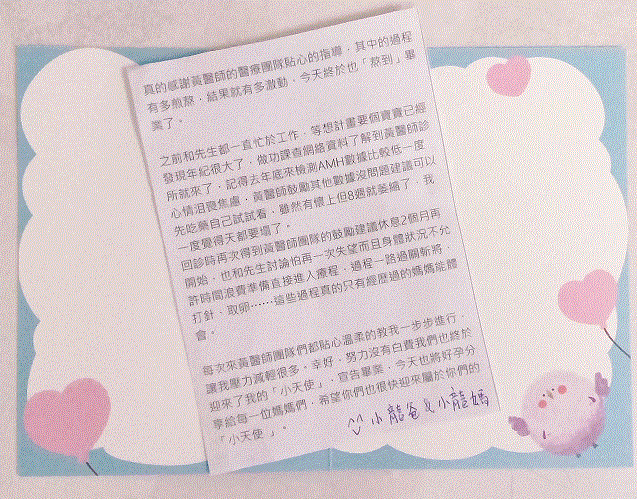 真的感謝黃醫師的醫療團隊貼心的指導，其中的過程
有多煎熬，結果就有多激動，今天終於也「熬到」畢
業了。
之前和先生都一直忙於工作，等想計畫要個寶寶已經
發現年紀很大了，做功課查網絡資料了解到黃醫師診
所就來了，記得去年底來檢測AMH數據比較低一度
心情沮喪焦慮，黃醫師鼓勵其他數據沒問題建議可以
先吃藥自己試試看，雖然有懷上但8週就萎縮了，我
一度覺得天都要塌了。
回診時再次得到黃醫師團隊的鼓勵建議休息2個月再
開始，也和先生討論怕再一次失望而且身體狀況不允
許時間浪費準備直接進入療程，過程一路過關斬將，
打針、取卵......這些過程真的只有經歷過的媽媽能體
會。
每次來黃醫師團隊們都貼心溫柔的教我一步步進行，
讓我壓力減輕很多。幸好，努力沒有白費我們也終於
迎來了我的「小天使」，宣告畢業，今天也將好孕分
享給每一位媽媽們，希望你們也很快迎來屬於你們的
「小天使」。
小龍爸 & 小龍媽